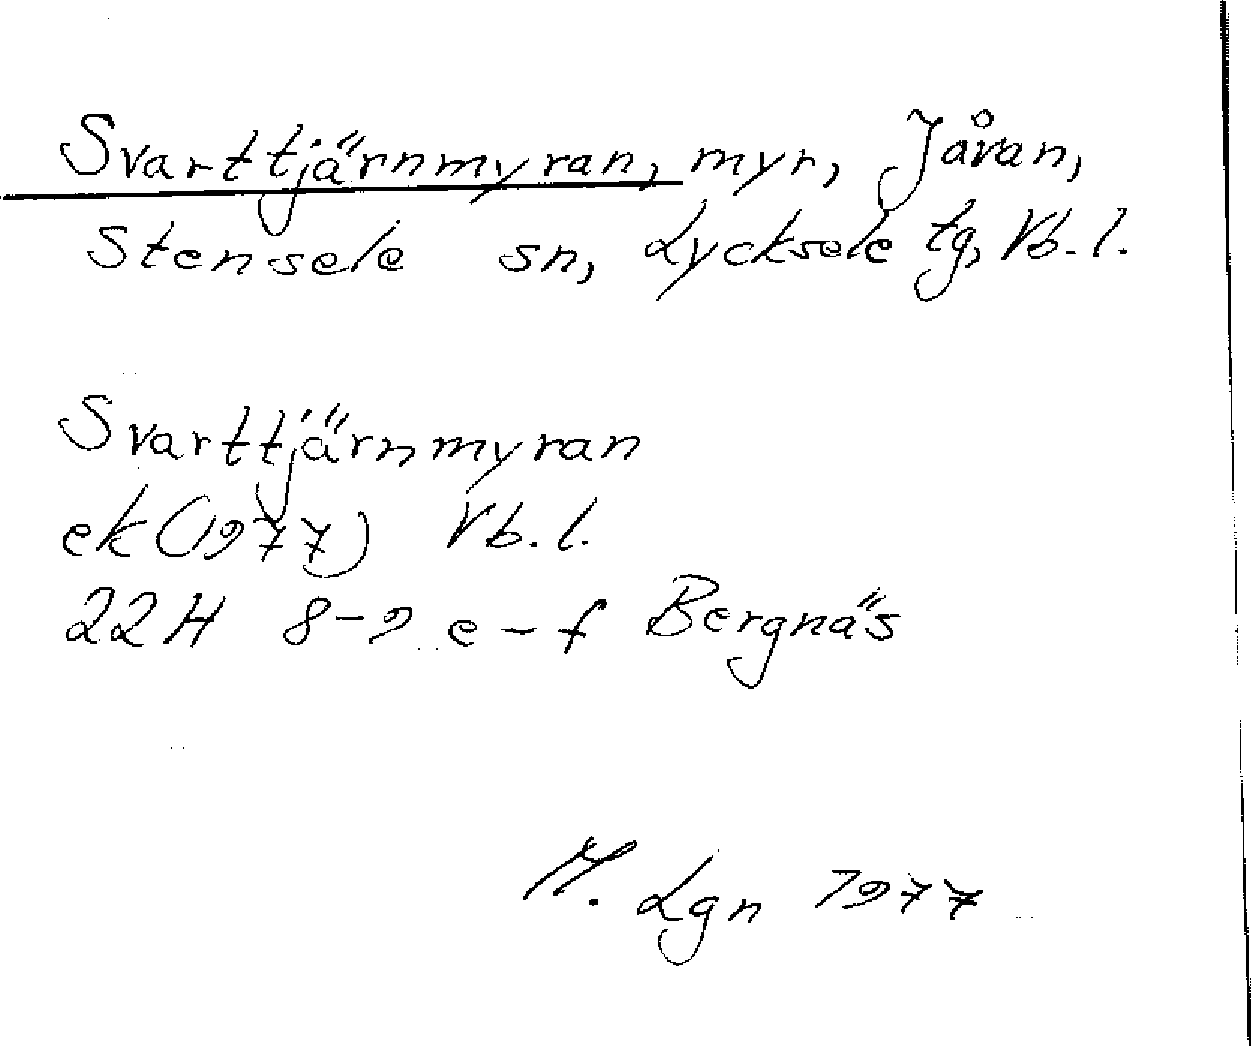 Svarttjärnmyran, myr, Jåvan,
Stensele sn, Lycksele tg, Vb. l.
Svarttjärnmyran
ek (1977) Vb. l.
22H 8-9 e-f Bergnäs
M. Lgn 1977